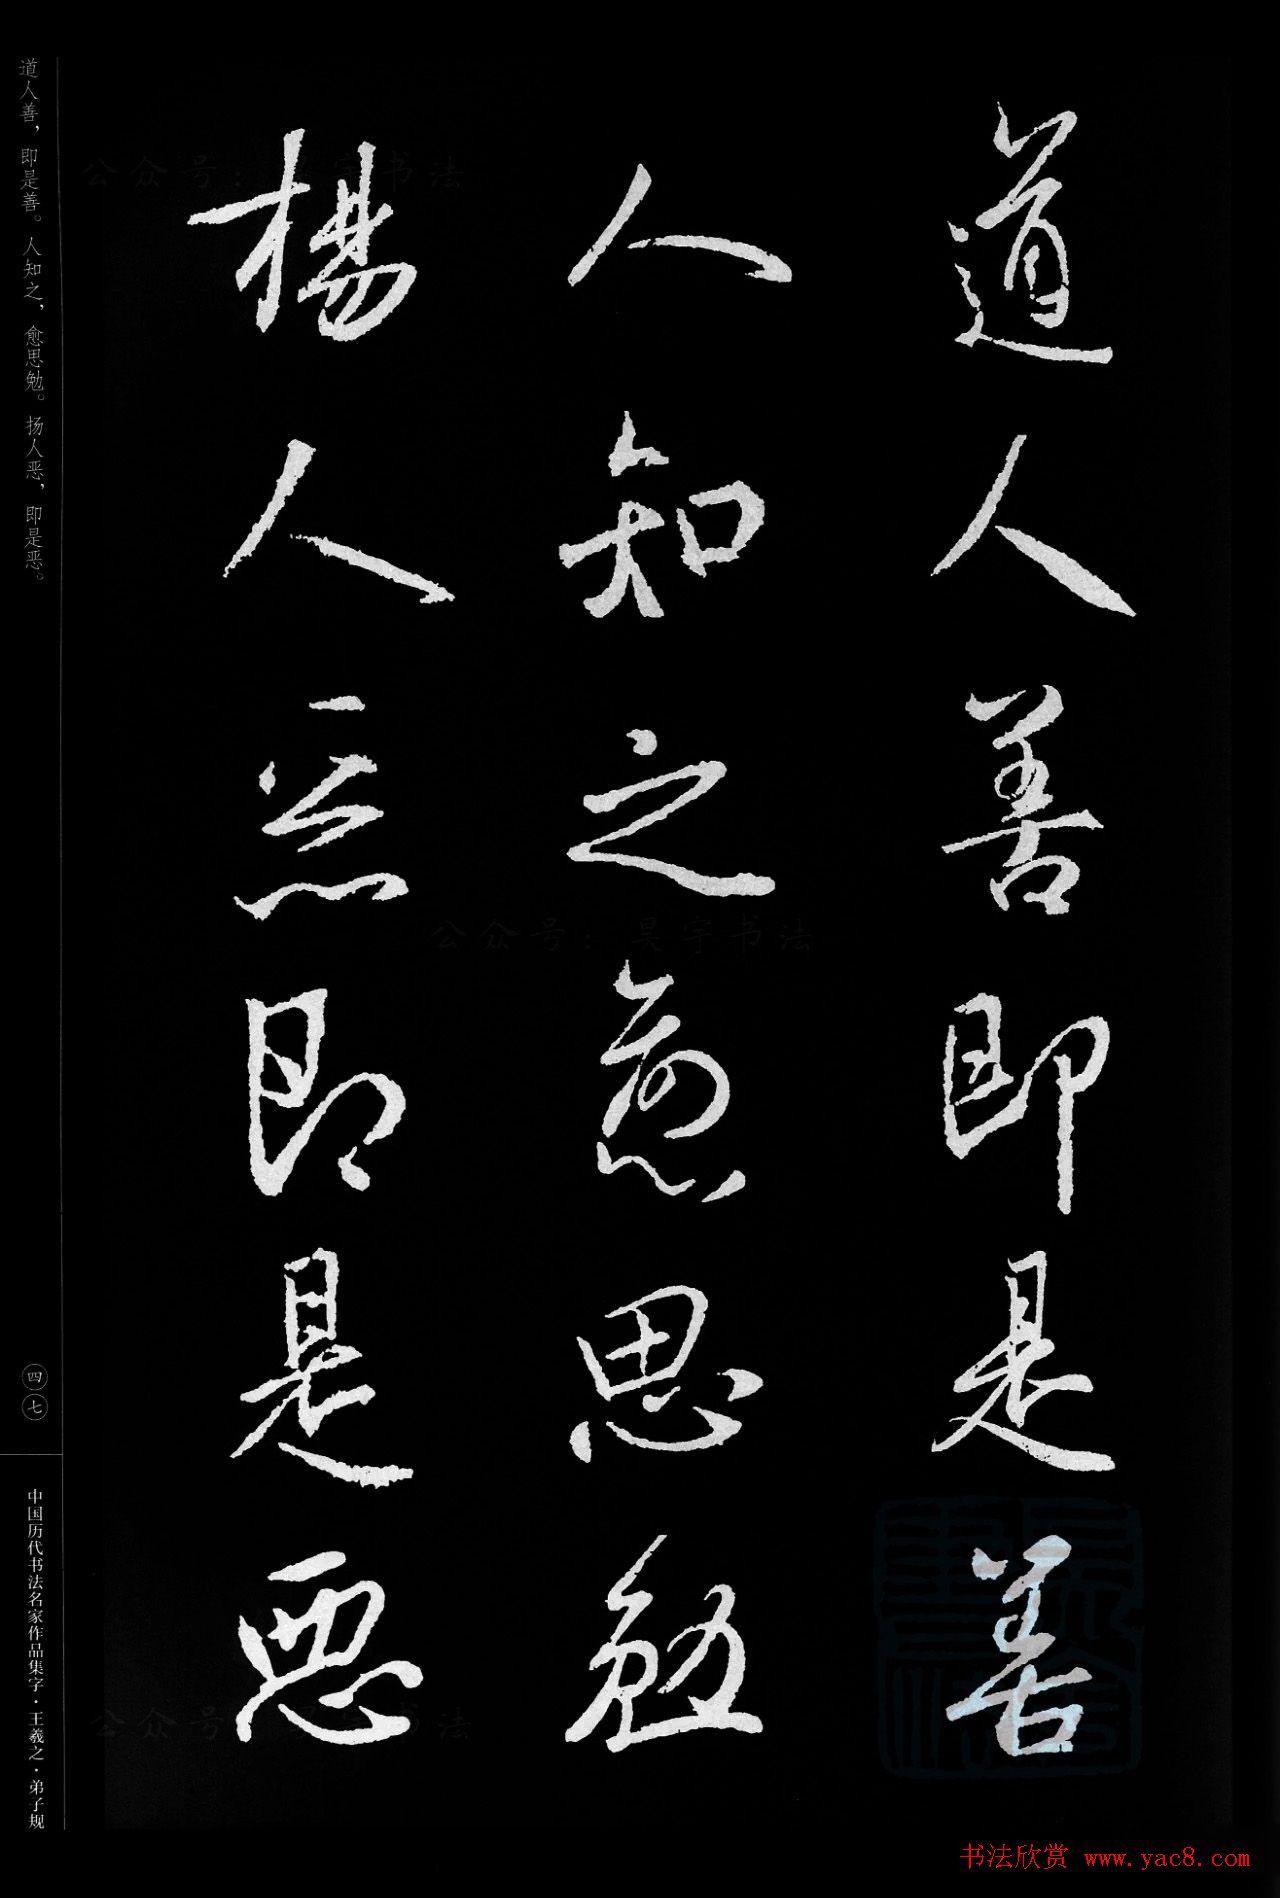 道人善即是善
人知之愈思勉
楊人惡即是惡
道人善，即是善。人知之，愈思勉。扬人恶，即是恶。
四七
中国历代书法名家作品集字·王羲之·弟子规
公众号：昊宇书法
书法欣赏 www.yac8.com